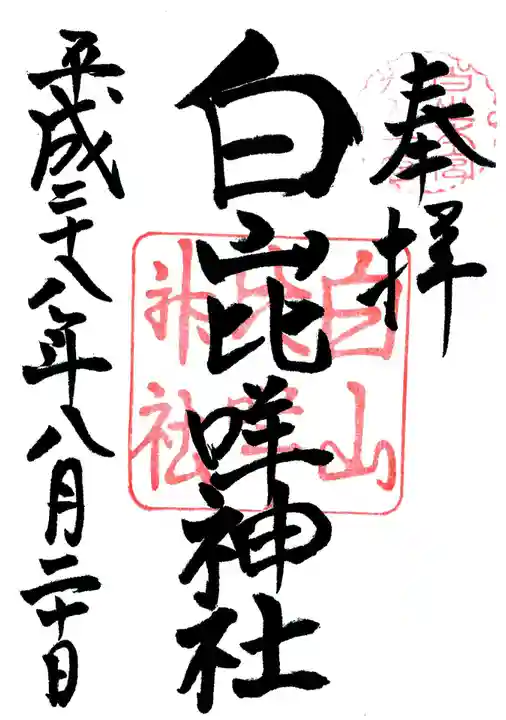 奉拝
白山比咩神社
平成二十八年八月二十日
白山
比咩
神社